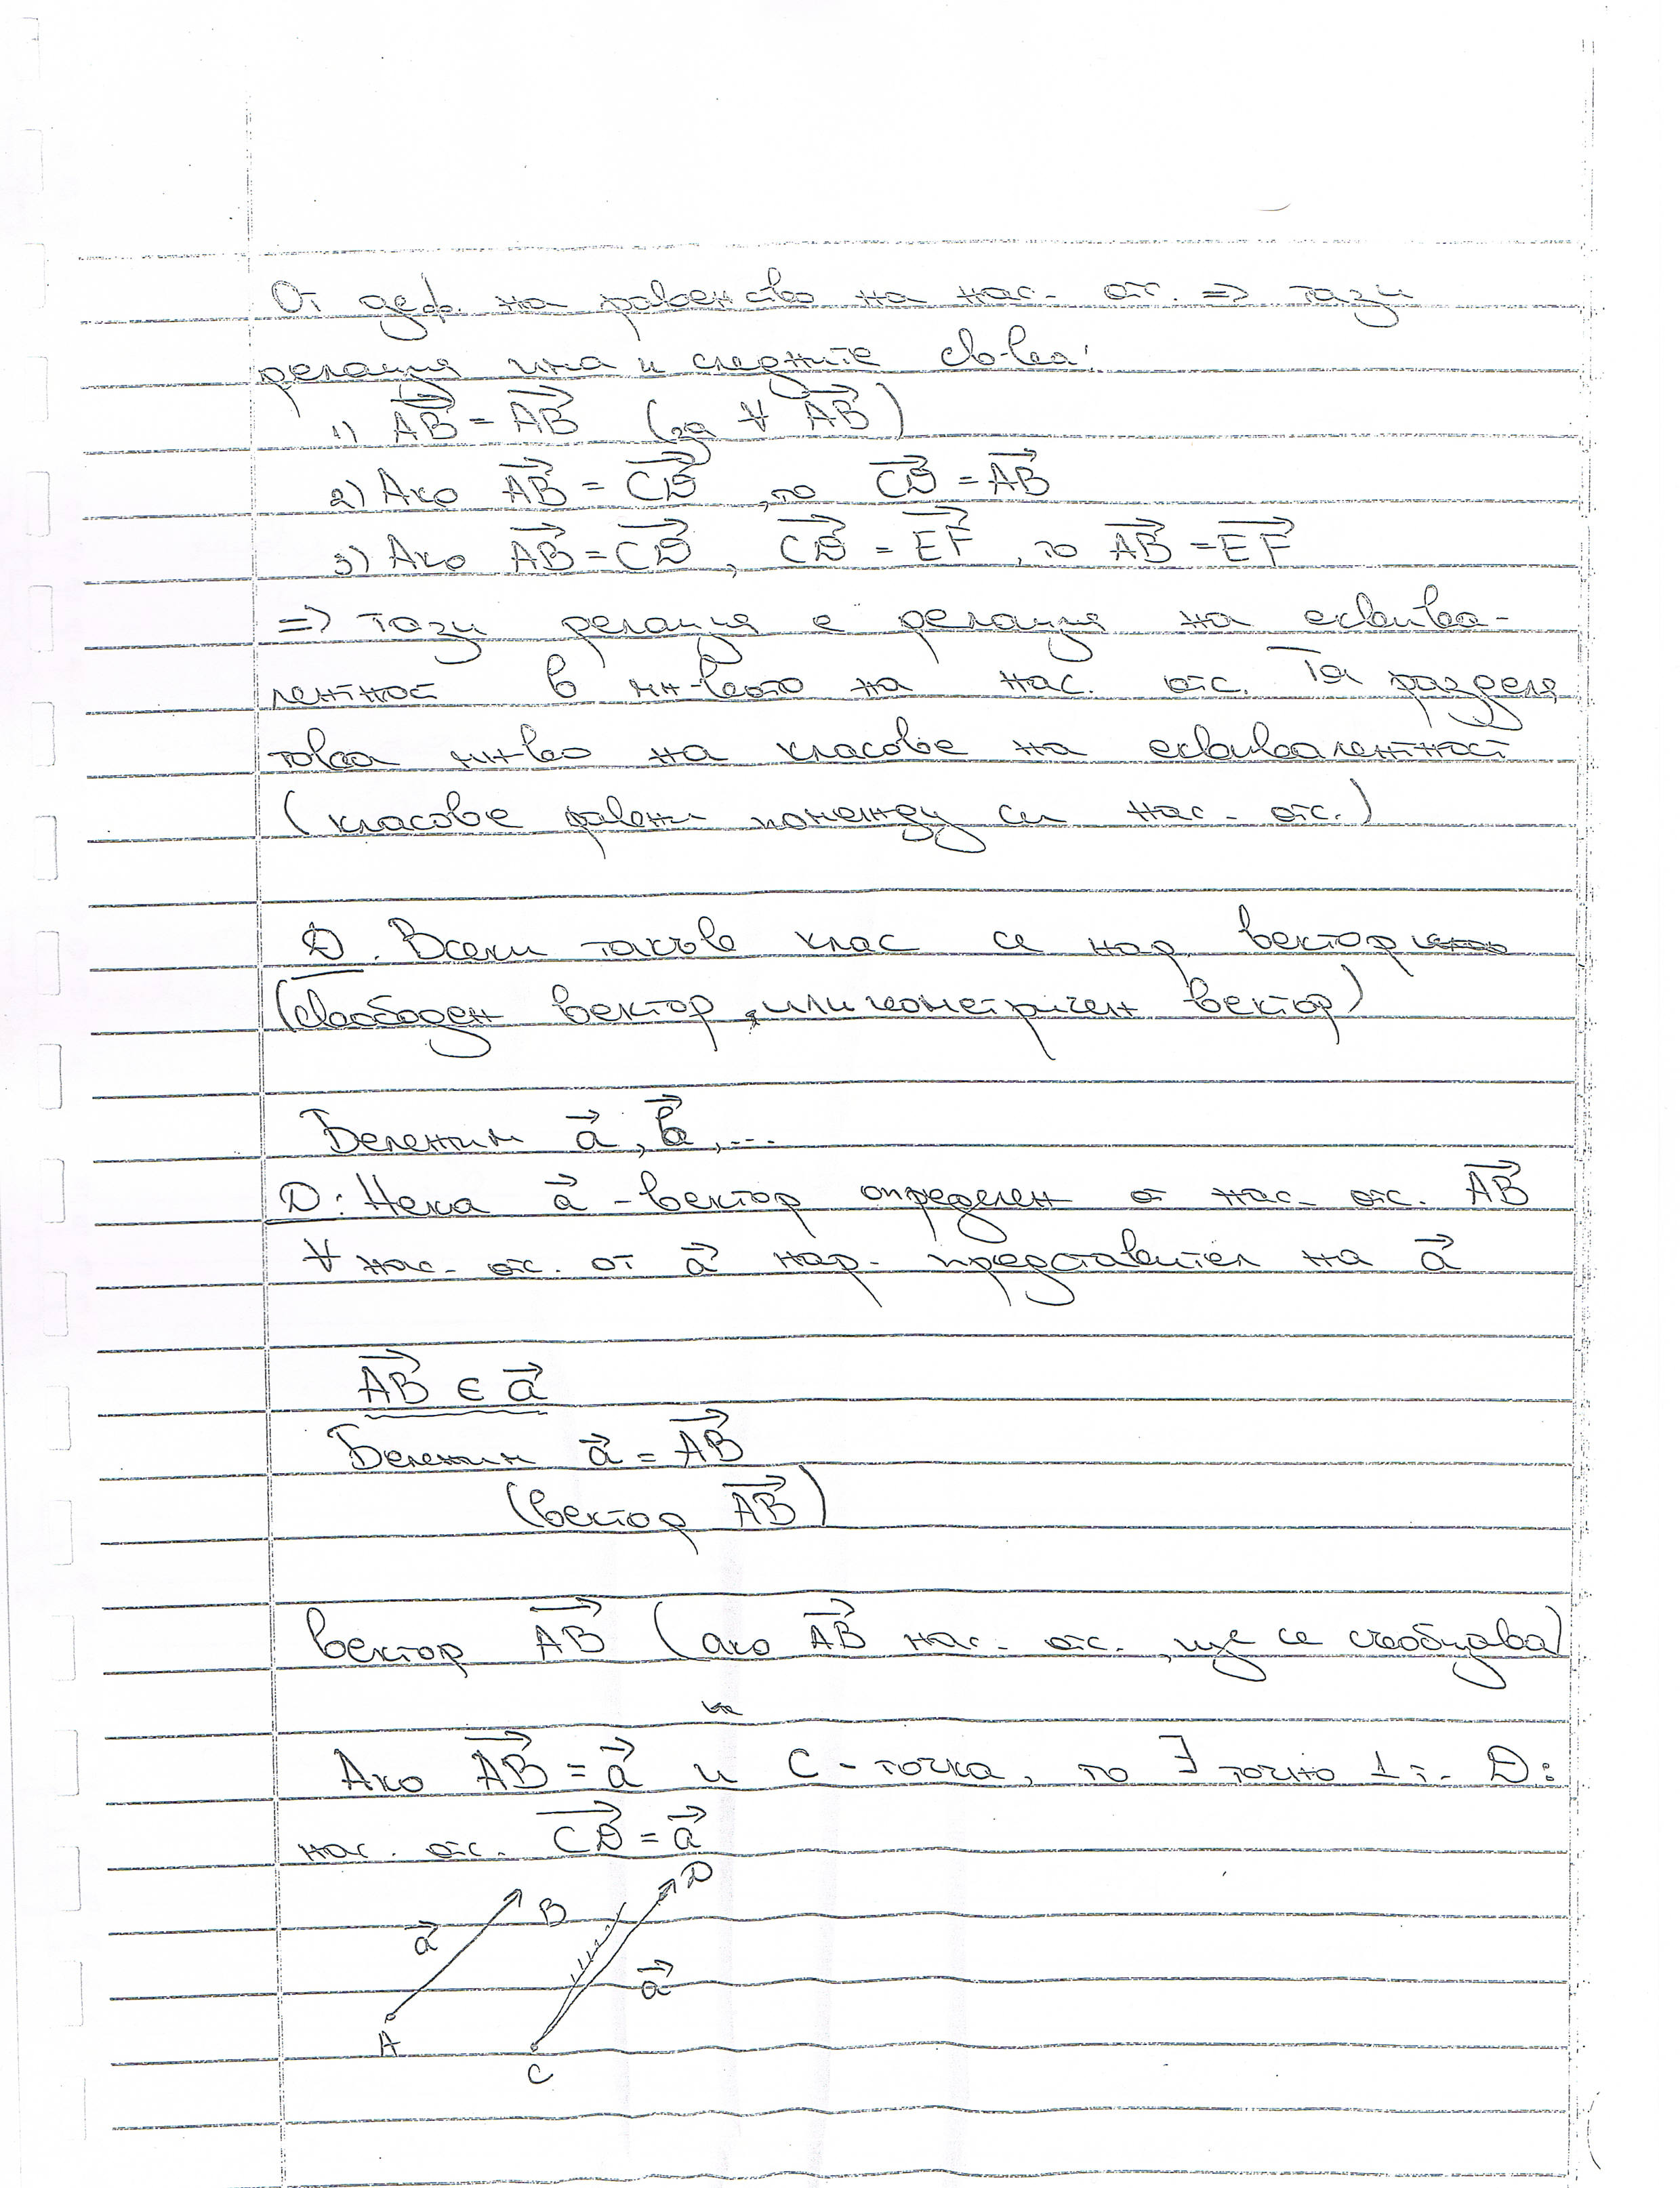 От деф. на равенство на нас. отс. => тази
релация има и следните св-ва:
1) AB→ = AB→ (за ∀ AB→)
2) Ако AB→ = CD→, то CD→ = AB→
3) Ако AB→ = CD→, CD→ = EF→, то AB→ = EF→
=> тази релация е релация на еквива-
лентност в мн-вото на нас. отс. Тя разделя
това мн-во на класове на еквивалентност
(класове равни помежду си нас. отс.)
D. Всеки такъв клас се нар. вектор
(свободен вектор, или геометричен вектор)
Бележим a→, b→, ...
D: Нека a→ - вектор определен от нас. отс. AB→
∀ нас. отс. от a→ нар. представител на a→
AB→ ∈ a→
Бележим a→ = AB→
(вектор AB→)
вектор AB→ (ако AB→ нас. отс., ще се съобщава)
Ако AB→ = a→ и C - точка, то ∃ точно 1 т. D:
нас. отс. CD→ = a→
a→ B D
a→
A
C